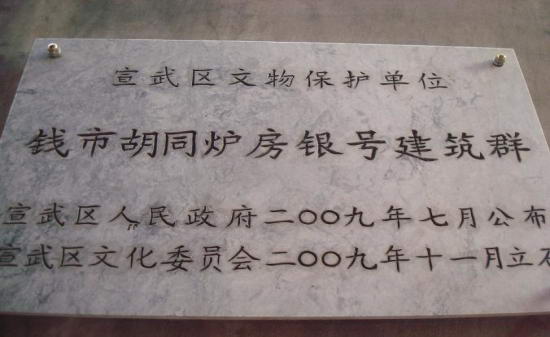 宣武区文物保护单位
钱市胡同炉房银号建筑群
宣武区人民政府二〇〇九年七月公布
宣武区文化委员会二〇〇九年十一月立石